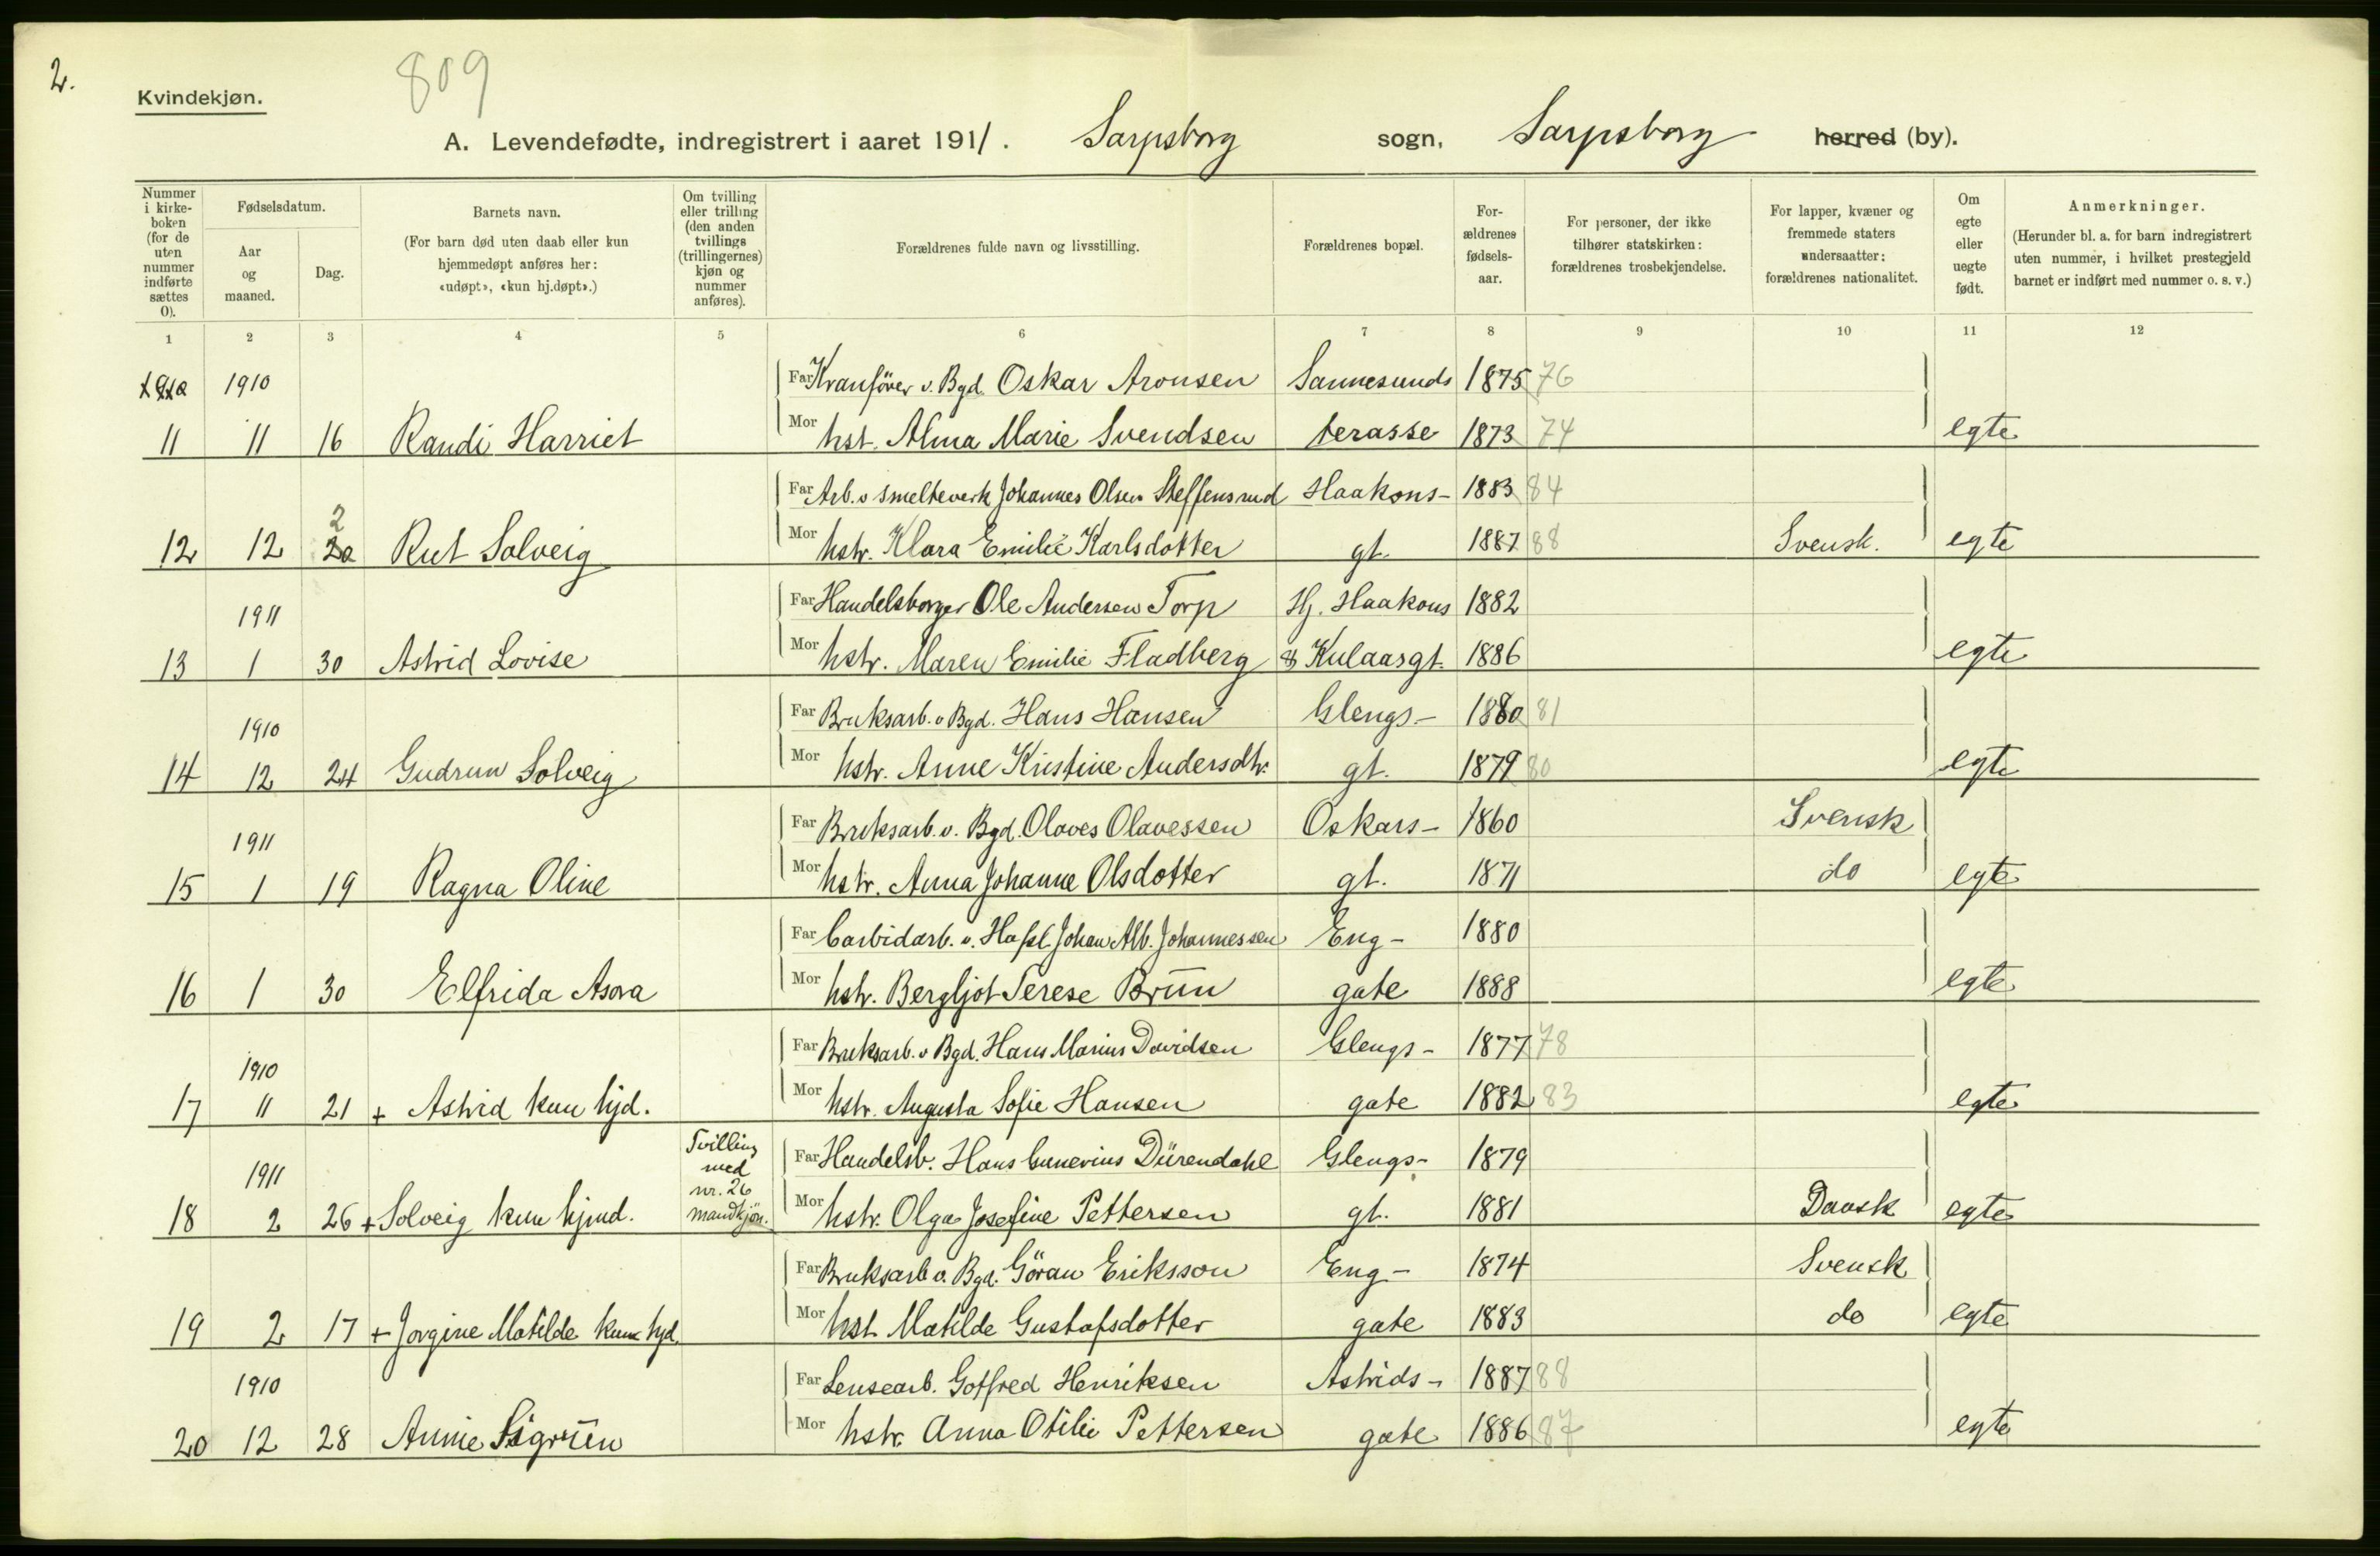 2.
809
Kvindekjøn.
A. Levendefødte, indregistrert i aaret 1911. Sarpsborg sogn, Sarpsborg herred (by).
Nummer i kirke-boken (for de uten nummer indførte sættes 0).
Fødselsdatum.
Aar og maaned.
Dag.
Barnets navn.
(For barn død uten daab eller kun hjemmedøpt anføres her: «udøpt», «kun hj.døpt».)
Om tvilling eller trilling (den anden tvillings (trillingernes) kjøn og nummer anføres).
Forældrenes fulde navn og livsstilling.
Forældrenes bopæl.
For-ældrenes fødsels-aar.
For personer, der ikke tilhører statskirken: forældrenes trosbekjendelse.
For lapper, kvæner og fremmede staters undersaatter: forældrenes nationalitet.
Om egte eller uegte født.
Anmerkninger.
(Herunder bl. a. for barn indregistrert uten nummer, i hvilket prestegjeld barnet er indført med nummer o. s. v.)
1 2 3 4 5 6 7 8 9 10 11 12
1910 Far Kranfører v. Bgd. Oskar Aronsen Sannesunds 1875 76
11 11 16 Randi Harriet Mor hst. Alma Marie Svendsen terasse 1873 74 egte
Far Arb. v Smelteverk Johannes Olsen Steffensrud Haakons- 1883 84
12 12 2 Rut Solveig Mor hstr. Klara Emilie Karlsdotter gt. 1887 88 Svensk. egte
1911 Far Handelsborger Ole Andersen Torp Hj. Haakons 1882
13 1 30 Astrid Lovise Mor hstr. Maren Emilie Fladberg & Kulaasgt. 1886 egte
1910 Far Bruksarb. v Bgd. Hans Hansen Glengs- 1880 81
14 12 24 Gudrun Solveig Mor hstr. Anne Kristine Andersdtr. gt. 1879 80 egte
1911 Far Bruksarb. v. Bgd. Olaves Olavessen Oskars- 1860 Svensk
15 1 19 Ragna Oline Mor hstr. Anna Johanne Olsdotter gt. 1871 do egte
Far Carbidarb. v. Hafsl. Johan Alb. Johannessen Eng- 1880
16 1 30 Elfrida Asora Mor hstr. Bergljot Terese Brün gate 1888 egte
1910 Far Bruksarb. v Bgd. Hans Marius Davidsen Glengs- 1877 78
17 11 21 + Astrid kun hjd. Mor hstr. Augusta Sofie Hansen gate 1882 83 egte
1911 Tvilling med nr. 26 mandkjön. Far Handelsb. Hans Gunerius Dürendahl Glengs- 1879
18 2 26 + Solveig kun hjmd. Mor hstr. Olga Josefine Pettersen gt. 1881 Dansk egte
Far Bruksarb v. Bgd. Göran Eriksson Eng- 1874 Svensk
19 2 17 + Jorgine Matilde kun hjd. Mor hst Matilde Gustafsdotter gate 1883 do egte
1910 Far Lensearb. Gotfred Henriksen Astrids- 1887 88
20 12 28 Annie Sigrün Mor hstr. Anna Otilie Pettersen gate 1886 87 egte